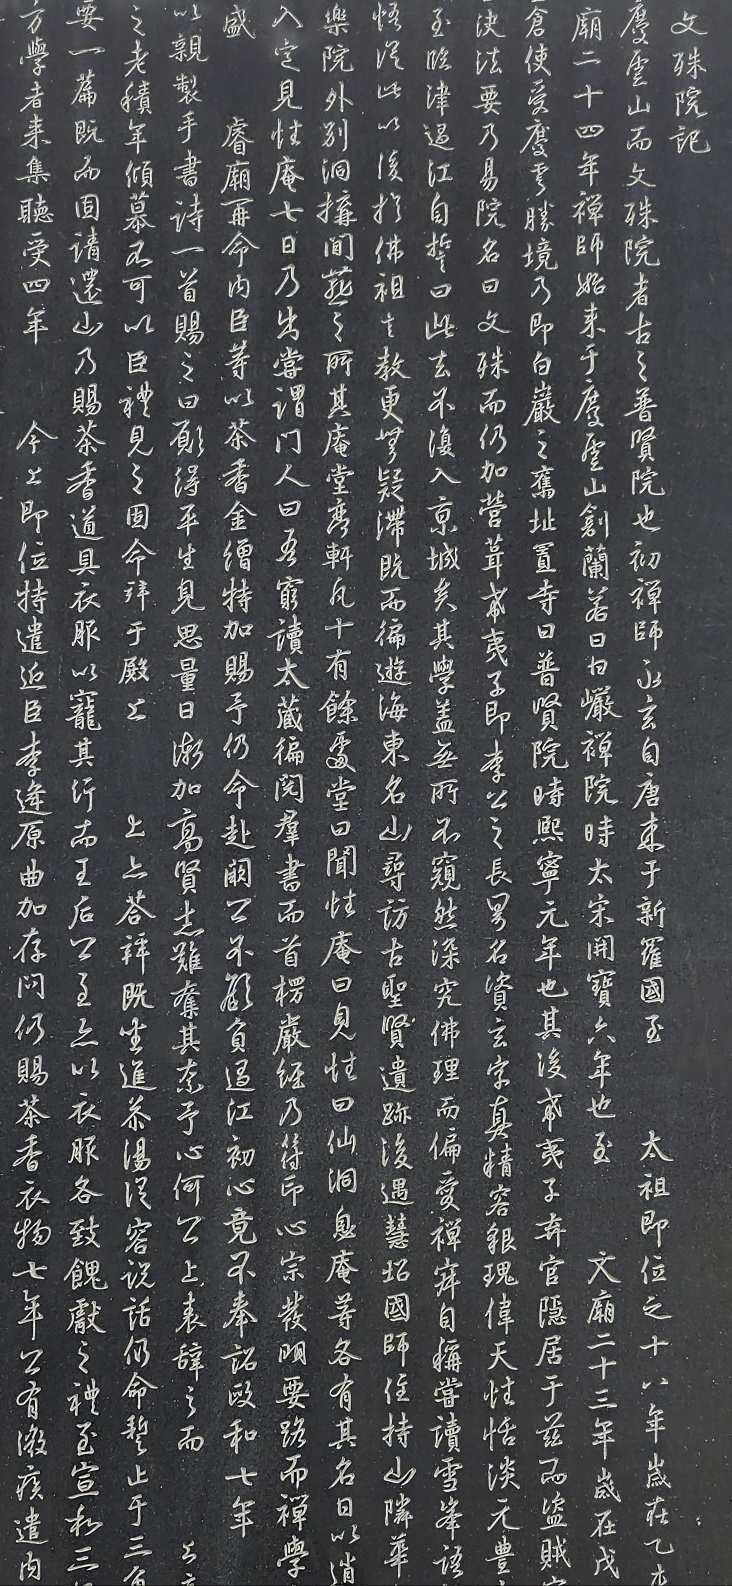 文殊院記
慶雲山而文殊院者古之普賢院也初禪師永玄自唐來于新羅國至 太祖即位之十八年歲在乙未
廟二十四年禪師始來于慶雲山創蘭若曰白巖禪院時太宋開寶六年也至 文廟二十三年歲在戊
倉使愛慶雲勝境乃即白巖之舊址置寺曰普賢院時熙寧元年也其後希夷子弃官隱居于茲而盜賊
決法要乃易院名曰文殊而仍加營葺希夷子即李公之長男名資玄字真精容貌瑰偉天性恬淡元豊
至臨津過江自誓曰此去不復入京城矣其學盖無所不窺然深究佛理而偏愛禪寂自稱嘗讀雪峯語
悟從此以後於佛祖之教更無疑滯既而徧遊海東名山尋訪古聖賢遺跡後遇慧炤國師住持山隣華
樂院外別洞搆閒燕之所其庵堂亭軒凡十有餘處堂曰聞性庵曰見性曰仙洞息庵等各有其名日以逍
入定見性庵七日乃出嘗謂門人曰吾窮讀大藏徧閱羣書而首楞嚴經乃符印心宗發明要路而禪學
盛 睿廟再命內臣等以茶香金繒特加賜予仍命赴闕公不欲負過江初心竟不奉詔政和七年
以親製手書詩一首賜之曰願得平生見思量日漸加高賢志難奪其柰予心何公上表辭之而 上
之老積年傾慕不可以臣禮見之固命拜于殿上 上亦荅拜既坐進茶湯從容說話仍命蹔止于三角
要一篇既而固請還山乃賜茶香道具衣服以寵其行而王后公主亦以衣服各致餽獻之禮至宣和三
方學者來集聽受四年 今上即位特遣近臣李逢原曲加存問仍賜茶香衣物七年公有微疾遣內